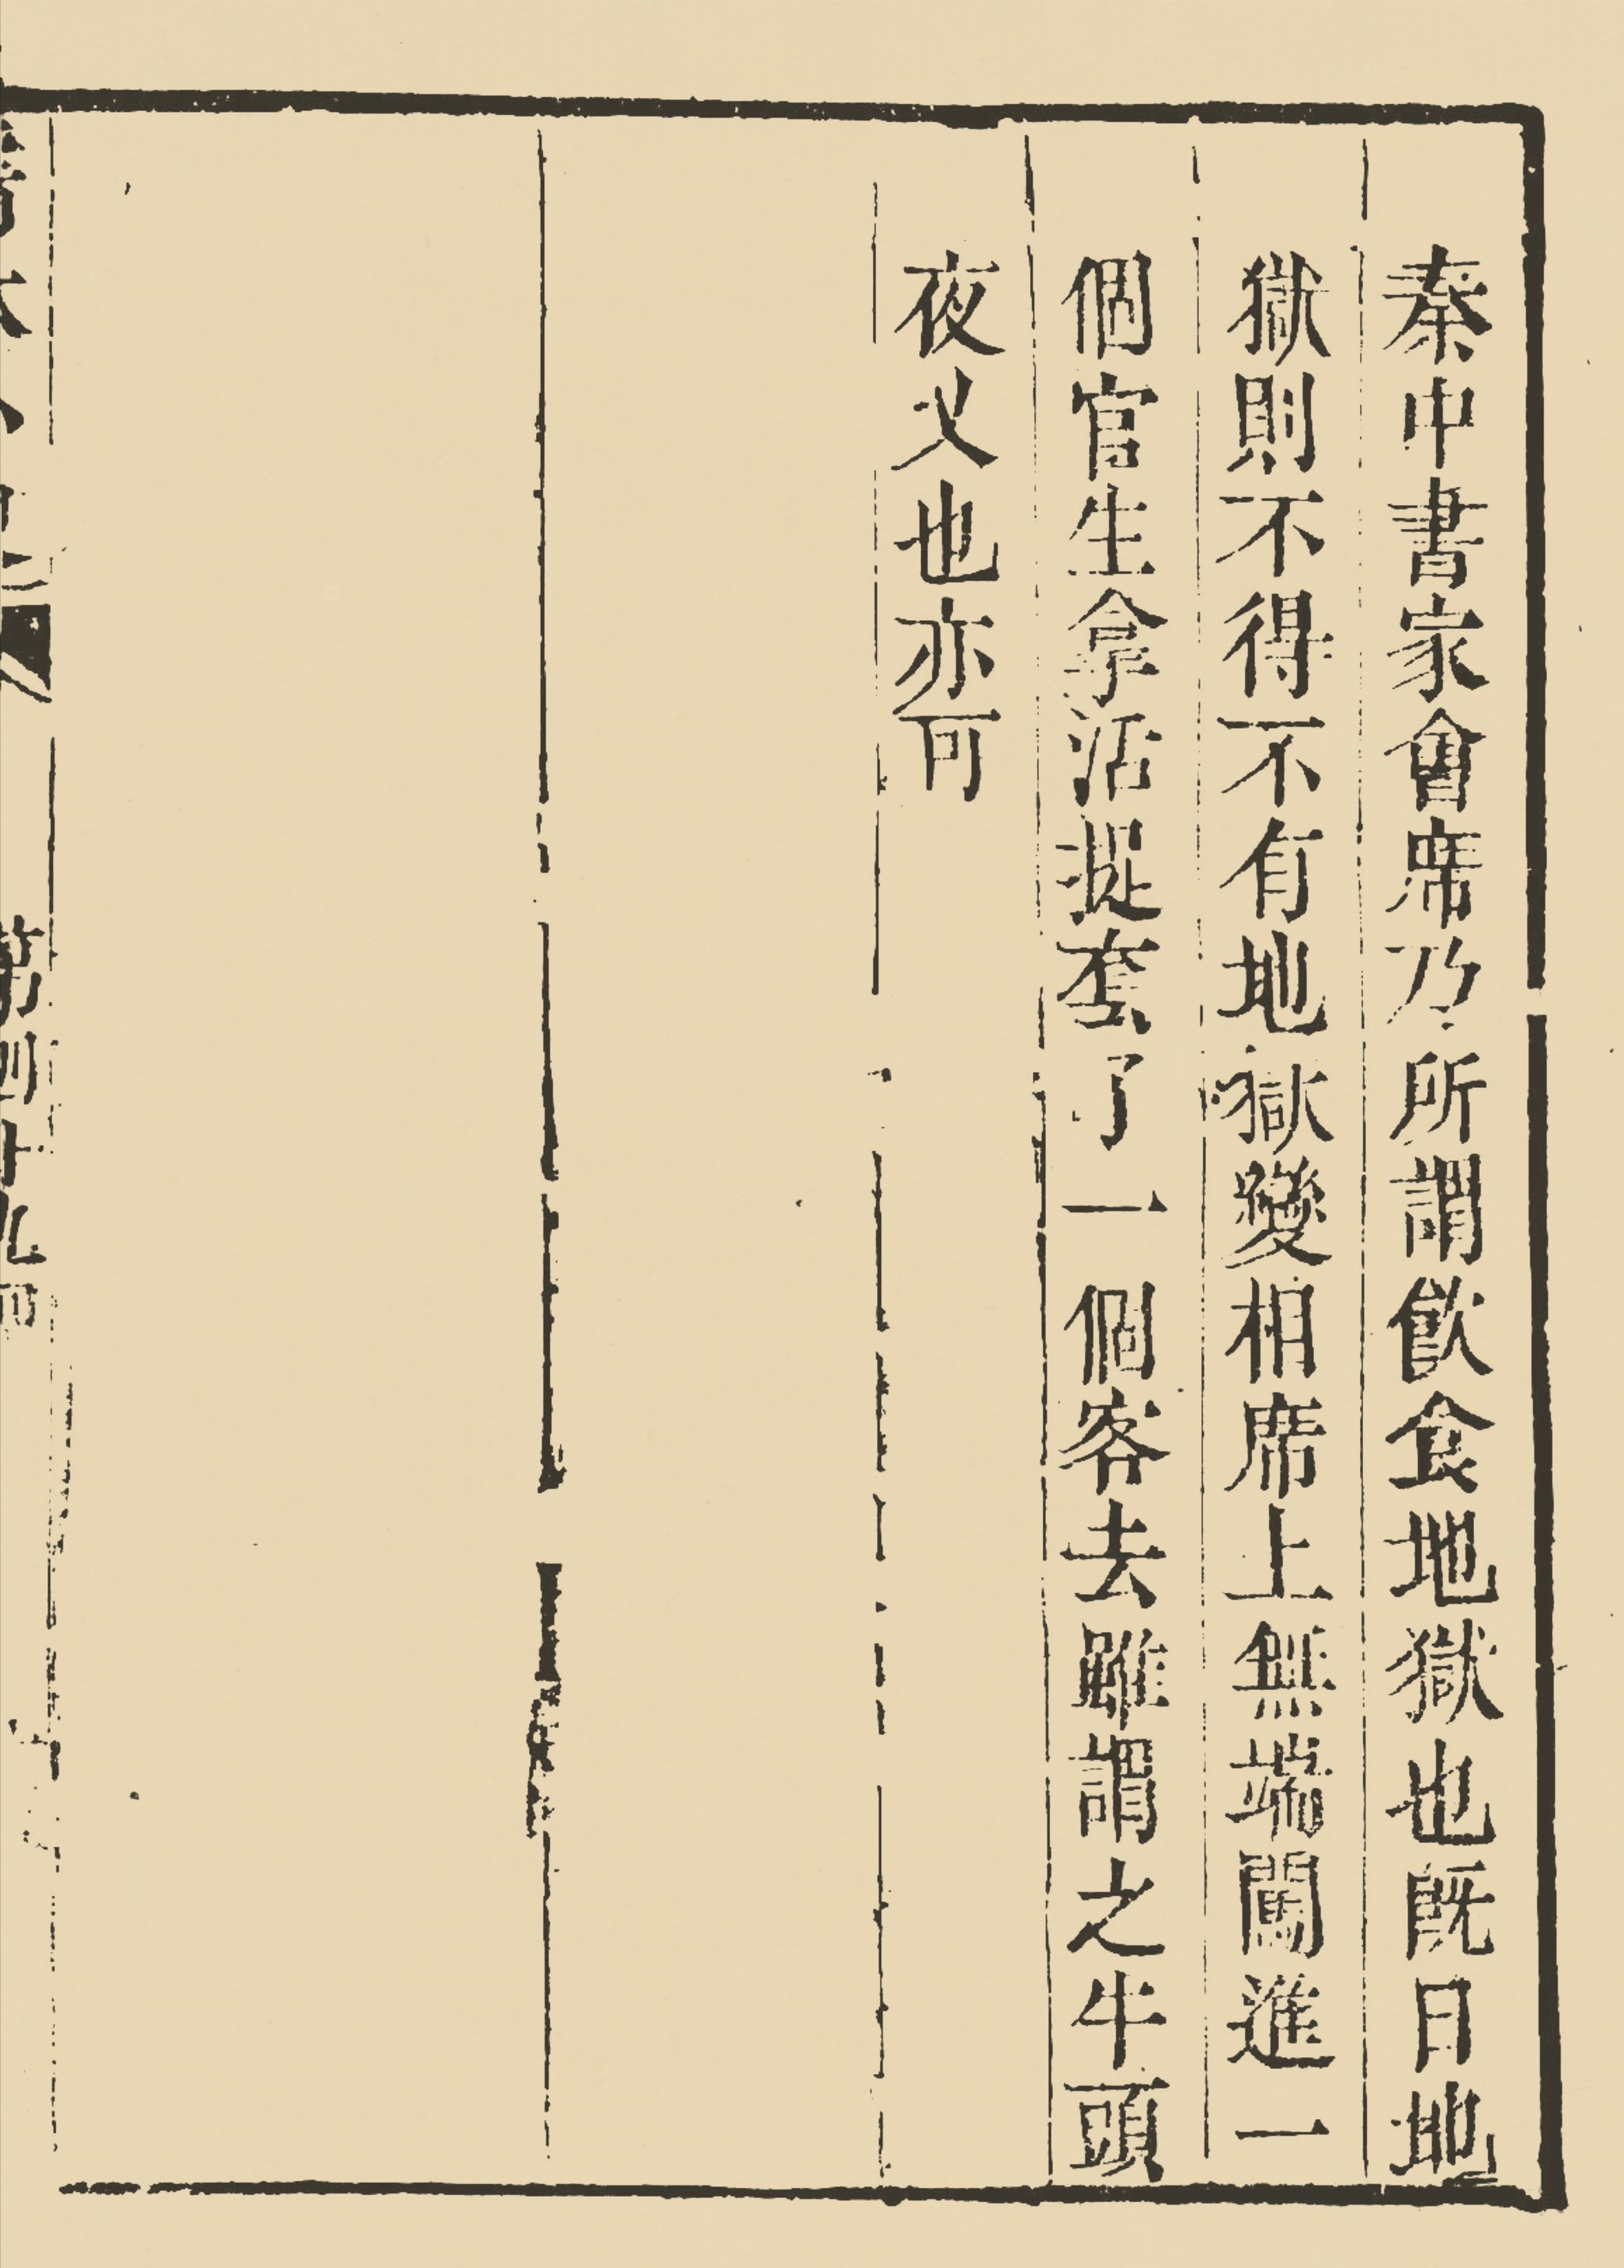 秦中書家會席乃所謂飲食地獄也既曰地
獄則不得不有地獄變相席上無端闖進一
個官生拿活捉套了一個客去雖謂之牛頭
夜叉也亦可
第四十九回